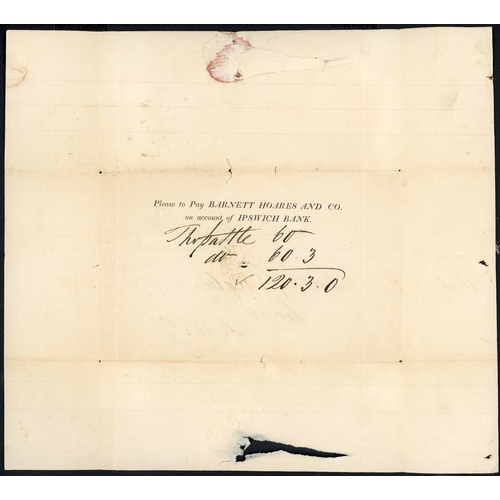 Please to Pay BARNETT HOARES AND CO.
on account of IPSWICH BANK.
Thos Pattle 60
do = 60.3
✓ 120.3.0